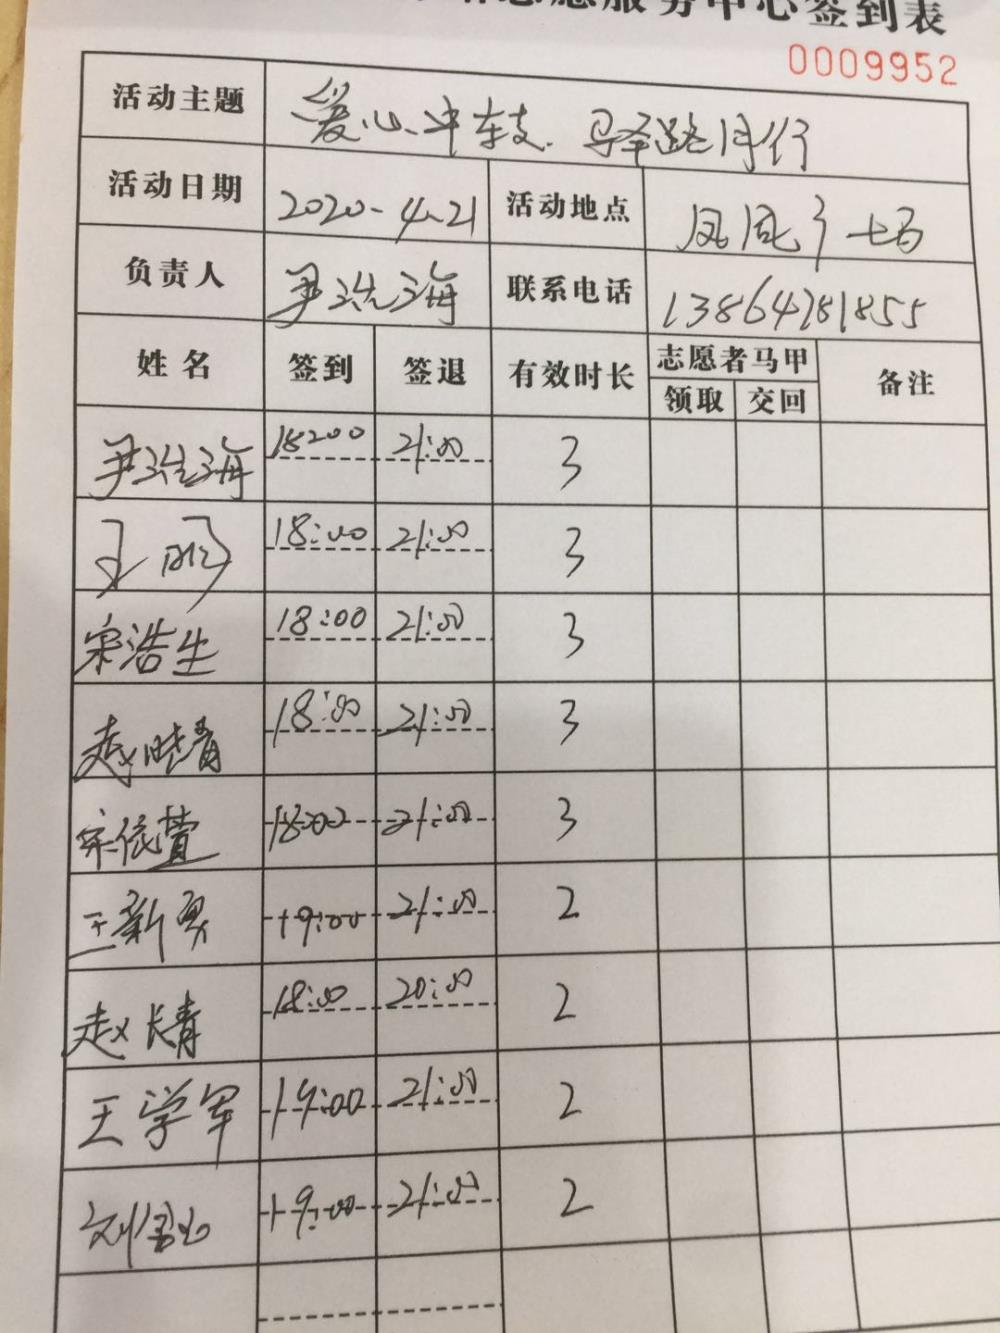 志愿服务中心签到表
0009952
活动主题 爱心
活动日期 2020-4-21 活动地点
负责人 尹浩海 联系电话 13864781855
姓名 签到 签退 有效时长 志愿者马甲 备注
领取 交回
尹浩海 18:00 21:00 3
王鹏 18:00 21:00 3
宋浩生 18:00 21:00 3
赵晓青 18:00 21:00 3
宋依萱 18:00 21:00 3
王新勇 19:00 21:00 2
赵长青 18:00 20:00 2
王学军 19:00 21:00 2
19:00 21:00 2